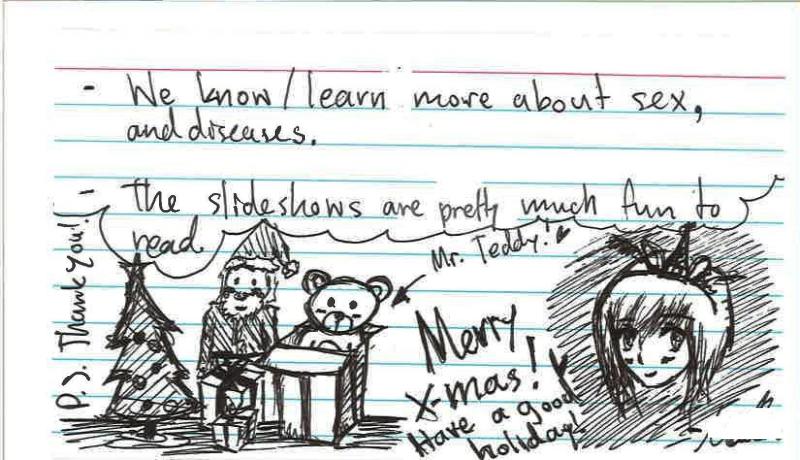 - We know/learn more about sex,
and diseases.
- The slideshows are pretty much fun to
read.
P.S. Thank you!!
Mr. Teddy!
Merry
X-mas!
Have a good
holiday!